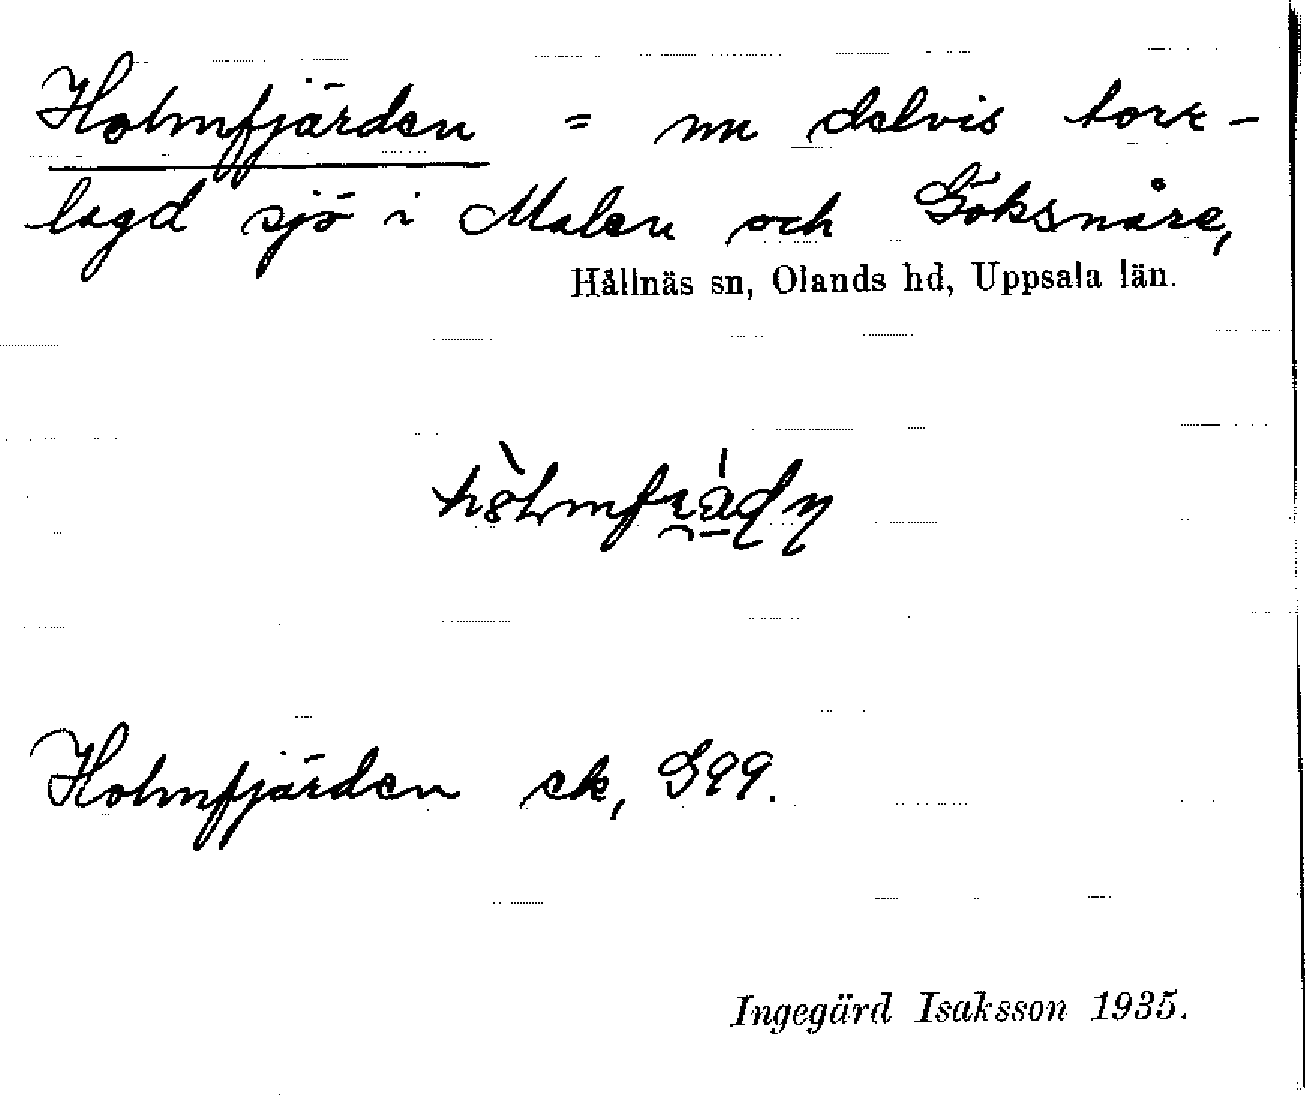 Holmfjärden = nu delvis torr-
lagd sjö i Malen och Göksnåre,
Hållnäs sn, Olands hd, Uppsala län.
Holmfjärden ek, G99.
Ingegärd Isaksson 1935.